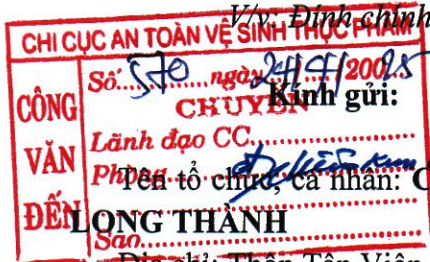 V/v: Đính chính
CHI CỤC AN TOÀN VỆ SINH THỰC PHẨM
CÔNG VĂN ĐẾN
Số: 570 ngày 24/4/2025
CHUYỂN
Kính gửi:
Lãnh đạo CC
Phòng
Tên tổ chức, cá nhân: C
LONG THÀNH
Sao
Địa chỉ: Thôn Tân Viên